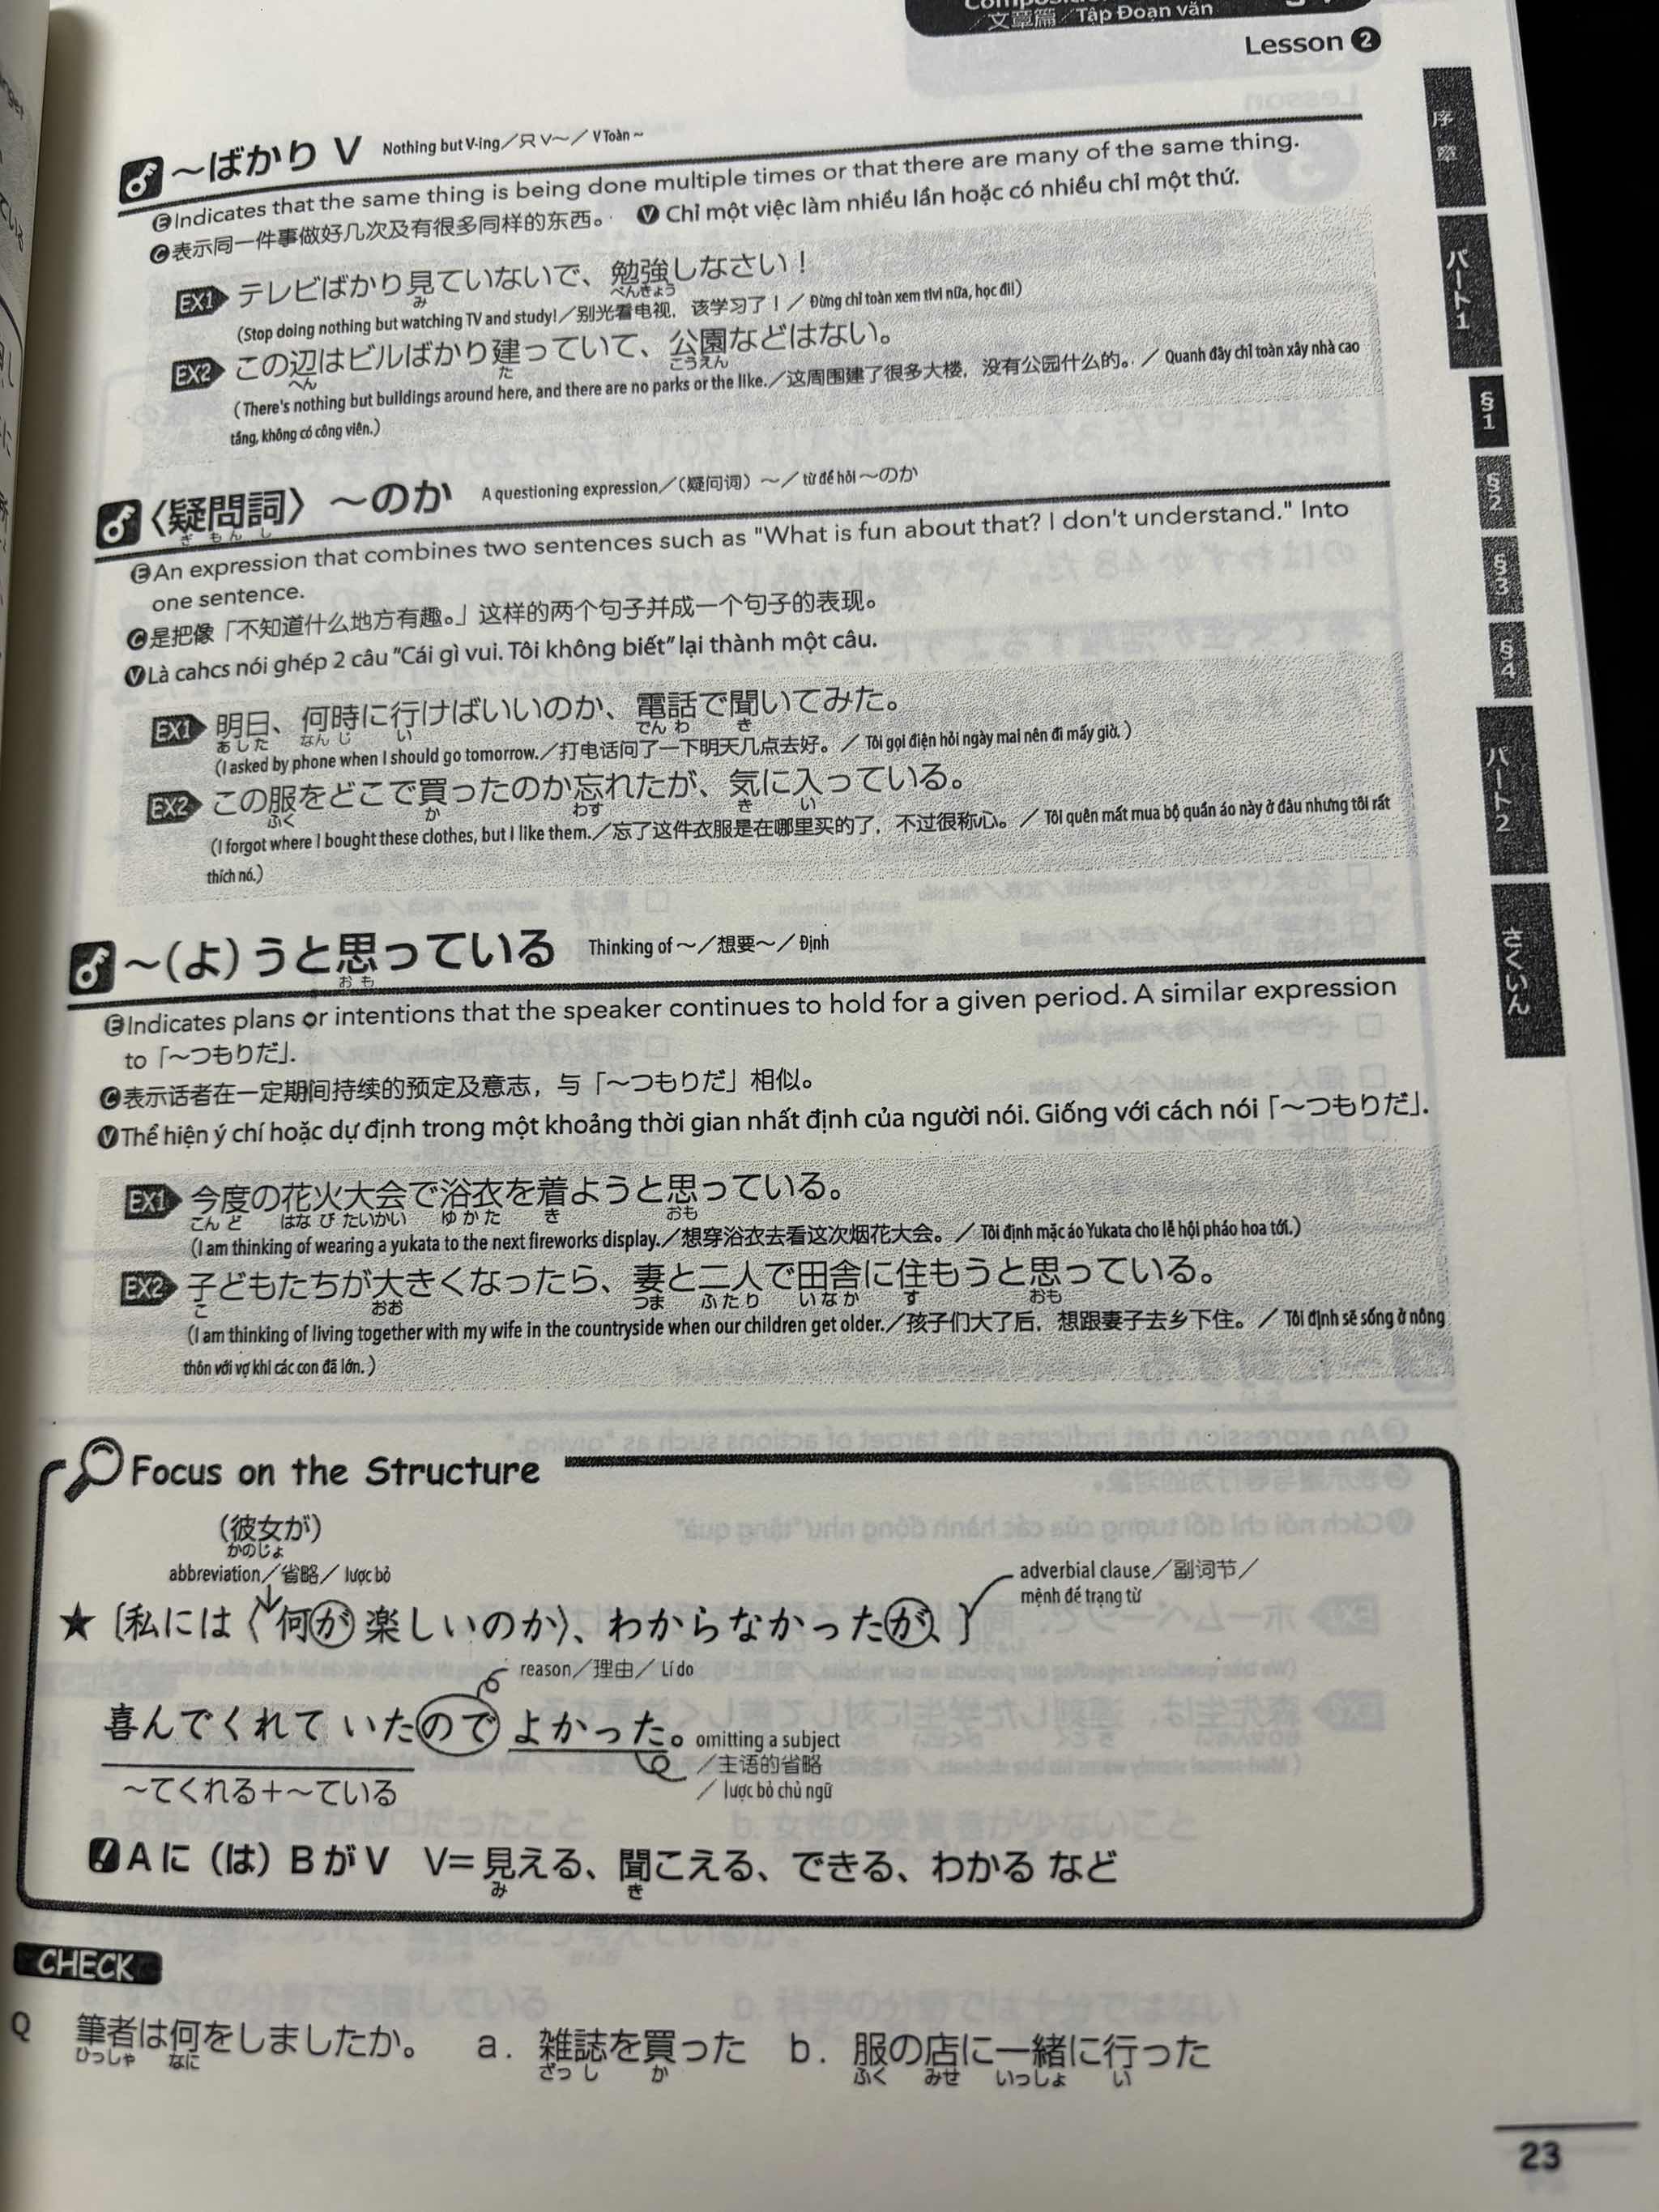 ／文章篇／Tập Đoạn văn
Lesson ❷
序章
パート1
§1
§2
§3
§4
パート2
さくいん
～ばかり V Nothing but V-ing／只 V～／V Toàn ~
ⒺIndicates that the same thing is being done multiple times or that there are many of the same thing.
Ⓒ表示同一件事做好几次及有很多同样的东西。 Ⓥ Chỉ một việc làm nhiều lần hoặc có nhiều chỉ một thứ.
EX1 テレビばかり見ていないで、勉強しなさい！
み べんきょう
(Stop doing nothing but watching TV and study!／别光看电视，该学习了！／Đừng chỉ toàn xem tivi nữa, học đi!)
EX2 この辺はビルばかり建っていて、公園などはない。
へん た こうえん
(There's nothing but buildings around here, and there are no parks or the like.／这周围建了很多大楼，没有公园什么的。／Quanh đây chỉ toàn xây nhà cao
tầng, không có công viên.)
〈疑問詞〉 ～のか A questioning expression／（疑问词）～／từ để hỏi～のか
ぎもんし
ⒺAn expression that combines two sentences such as "What is fun about that? I don't understand." Into
one sentence.
Ⓒ是把像「不知道什么地方有趣。」这样的两个句子并成一个句子的表现。
ⓋLà cahcs nói ghép 2 câu "Cái gì vui. Tôi không biết" lại thành một câu.
EX1 明日、何時に行けばいいのか、電話で聞いてみた。
あした なんじ い でんわ き
(I asked by phone when I should go tomorrow.／打电话问了一下明天几点去好。／Tôi gọi điện hỏi ngày mai nên đi mấy giờ.)
EX2 この服をどこで買ったのか忘れたが、気に入っている。
ふく か わす き い
(I forgot where I bought these clothes, but I like them.／忘了这件衣服是在哪里买的了，不过很称心。／Tôi quên mất mua bộ quần áo này ở đâu nhưng tôi rất
thích nó.)
～（よ）うと思っている Thinking of～／想要～／Định
おも
ⒺIndicates plans or intentions that the speaker continues to hold for a given period. A similar expression
to「～つもりだ」.
Ⓒ表示话者在一定期间持续的预定及意志，与「～つもりだ」相似。
ⓋThể hiện ý chí hoặc dự định trong một khoảng thời gian nhất định của người nói. Giống với cách nói「～つもりだ」.
EX1 今度の花火大会で浴衣を着ようと思っている。
こんど はなびたいかい ゆかた き おも
(I am thinking of wearing a yukata to the next fireworks display.／想穿浴衣去看这次烟花大会。／Tôi định mặc áo Yukata cho lễ hội pháo hoa tới.)
EX2 子どもたちが大きくなったら、妻と二人で田舎に住もうと思っている。
こ おお つま ふたり いなか す おも
(I am thinking of living together with my wife in the countryside when our children get older.／孩子们大了后，想跟妻子去乡下住。／Tôi định sẽ sống ở nông
thôn với vợ khi các con đã lớn.)
Focus on the Structure
（彼女が）
かのじょ
abbreviation／省略／lược bỏ
adverbial clause／副词节／
mệnh đề trạng từ
★〔私には〈何が楽しいのか〉、わからなかったが、〕
reason／理由／Lí do
喜んでくれていたのでよかった。
omitting a subject
／主语的省略
／lược bỏ chủ ngữ
～てくれる＋～ている
Aに（は）BがV V＝見える、聞こえる、できる、わかる など
み き
CHECK
Q 筆者は何をしましたか。 a. 雑誌を買った b. 服の店に一緒に行った
ひっしゃ なに ざっし か ふく みせ いっしょ い
23